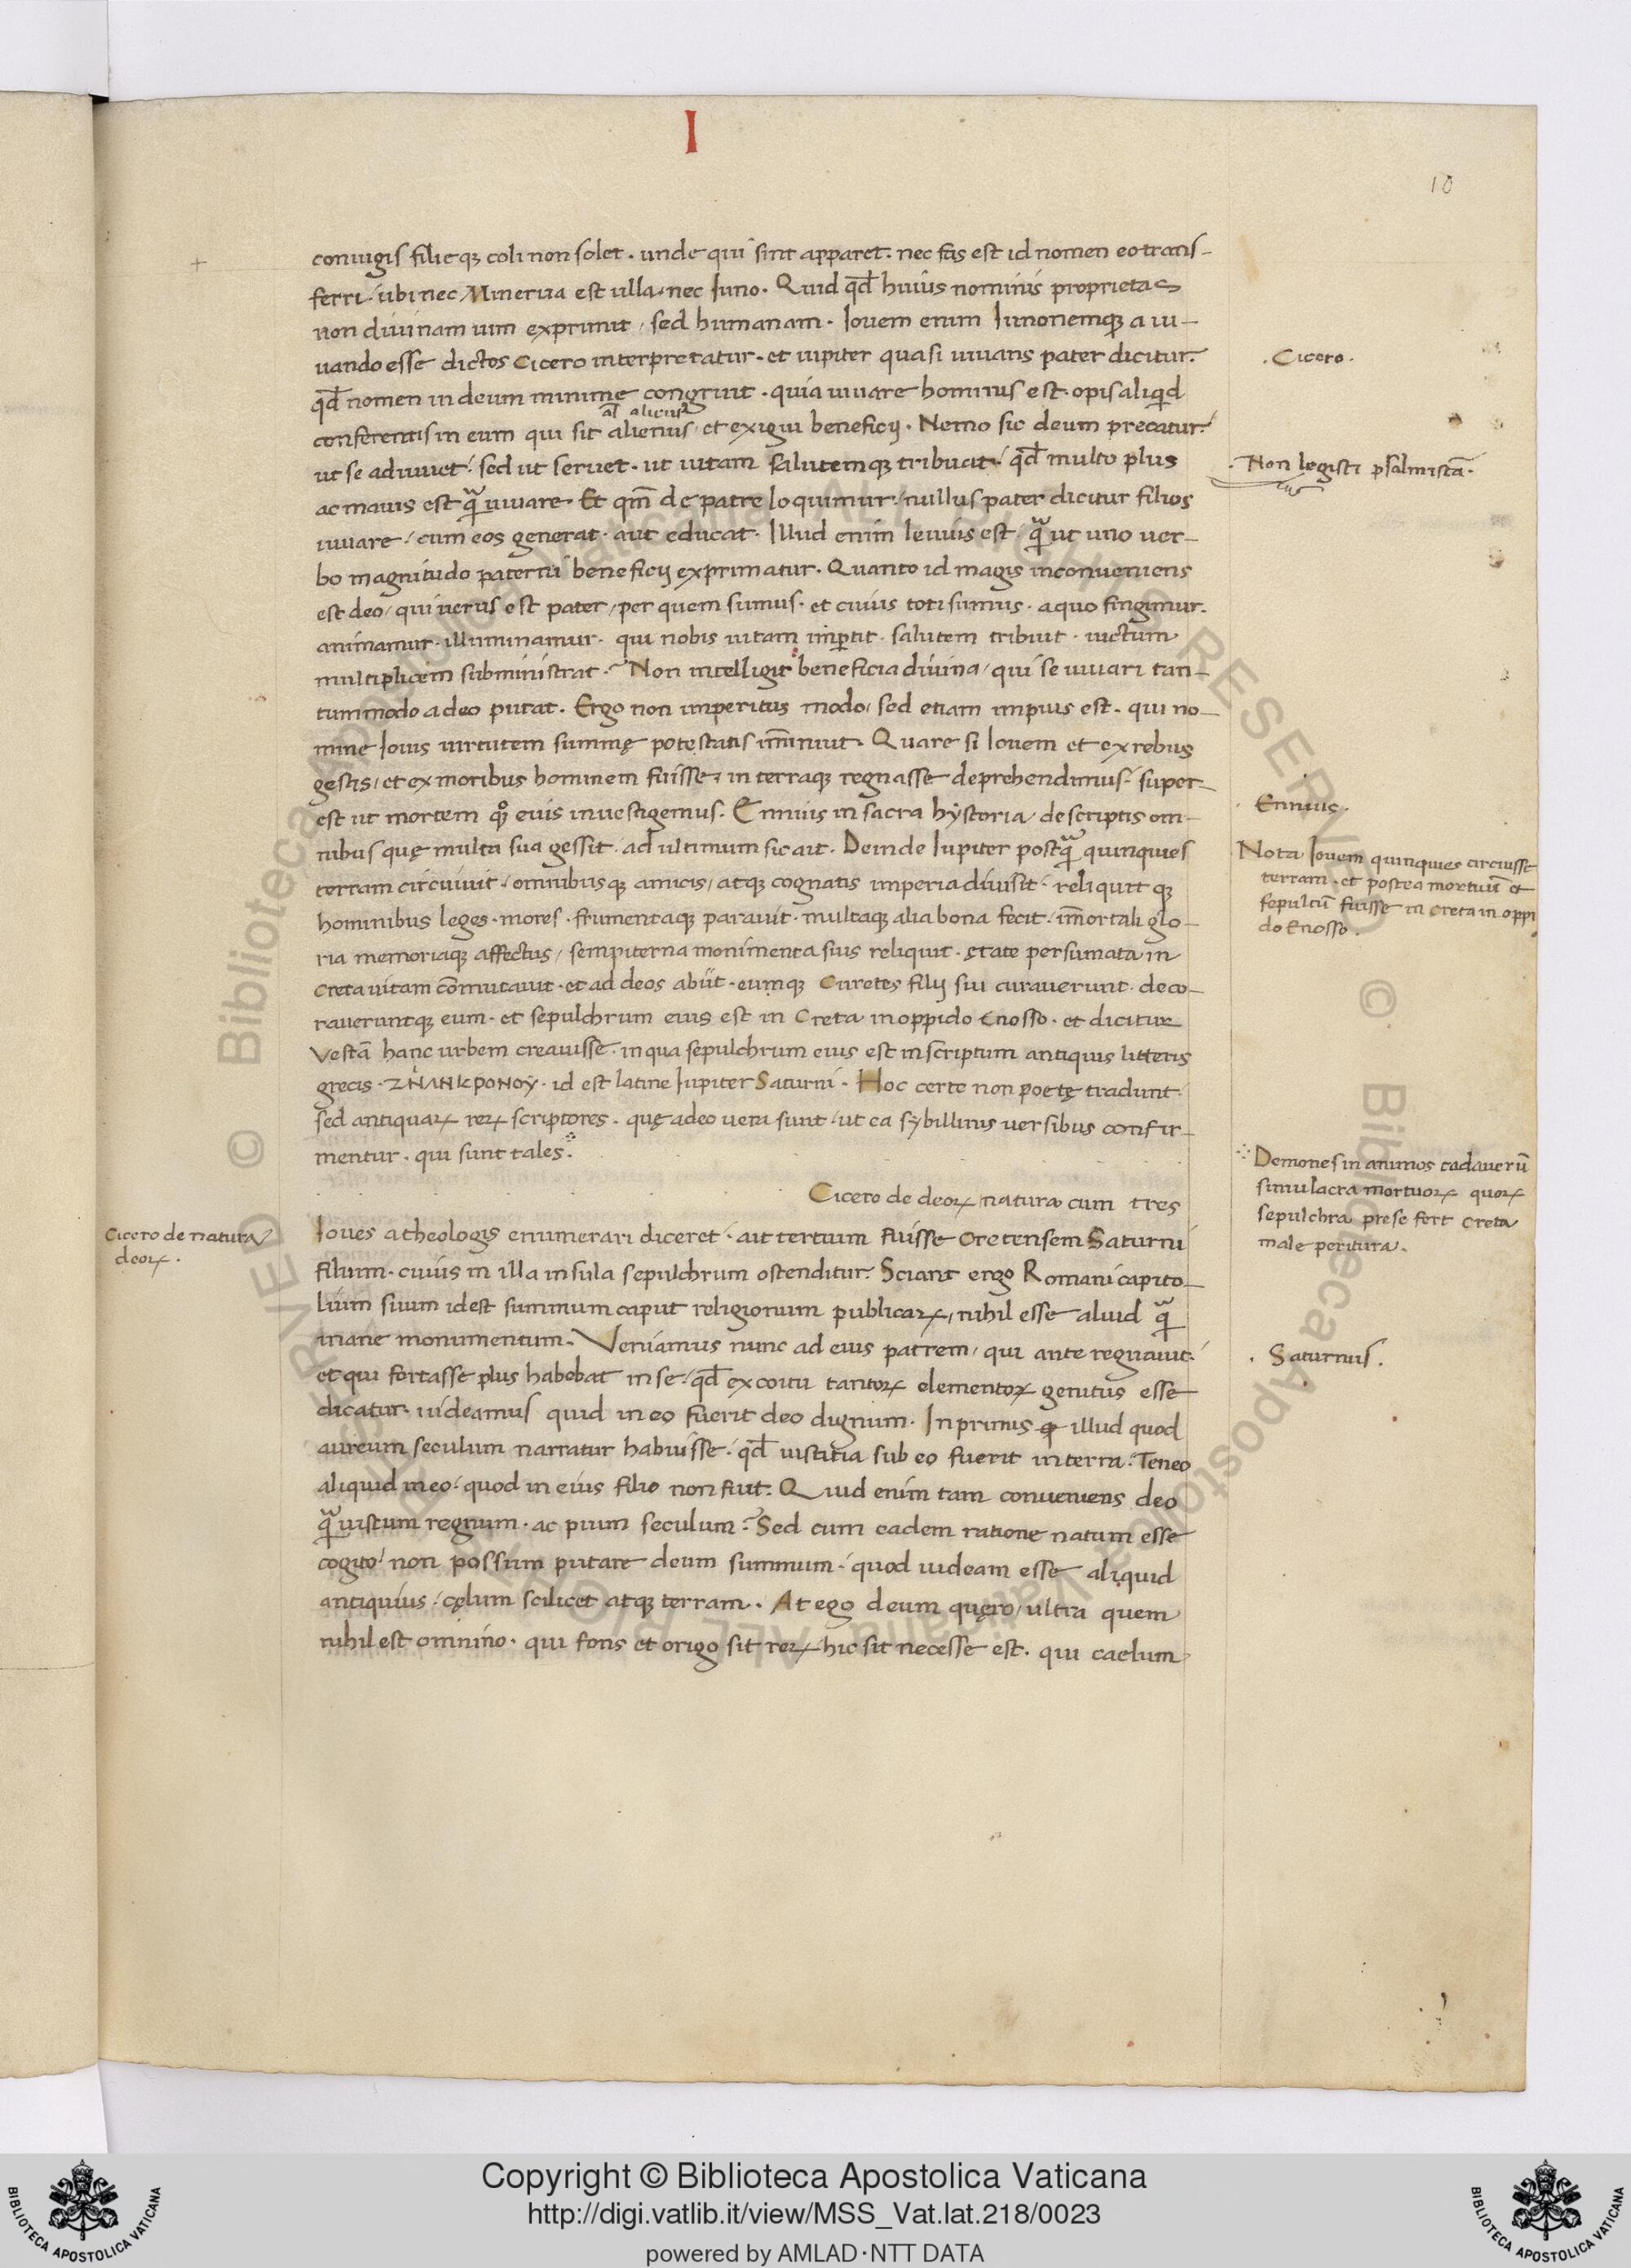 I
10
coniugis filieqꝫ coli non solet · unde qui sint apparet · nec fas est id nomen eo trans-
ferri · ubi nec Minerua est ulla · nec Iuno · Quid qđ huius nominis proprietas
non diuinam uim exprimit / sed humanam · Iouem enim Iunonemqꝫ a iu-
uando esse dictos Cicero interpretatur · et iupiter quasi iuuans pater dicitur ·
· Cicero ·
qđ nomen in deum minime congruit · quia iuuare hominis est · opis aliqid
conferentis in eum qui sit alienus / et exigui beneficij · Nemo sic deum precatur ·
ut se adiuuet · sed ut seruet · ut uitam salutemqꝫ tribuat · qđ multo plus
· Non legisti psalmistā ·
ac maius est qᷓ iuuare · Et qm̄ de patre loquimur / nullus pater dicitur filios
iuuare · cum eos generat · aut educat · Illud enim leuius est · qᷓ ut uno uer-
bo magnitudo paterni beneficij exprimatur · Quanto id magis inconueniens
est deo / qui uerus est pater / per quem sumus · et cuius toti sumus · a quo fingimur ·
animamur · illuminamur · qui nobis uitam imꝑtit · salutem tribuit · uictum
multiplicem subministrat · Non intelligit beneficia diuina / qui se iuuari tan-
tummodo a deo putat · Ergo non imperitus modo / sed etiam impius est · qui no-
mine Iouis uirtutem summę potestatis im̄inuit · Quare si Iouem et ex rebus
gestis / et ex moribus hominem fuisse / in terraqꝫ regnasse deprehendimus · super-
est ut mortem qꝫ eius inuestigemus · Ennius in sacra hystoria / descriptis om-
· Ennius ·
nibus quę multa sua gessit · ad ultimum sic ait · Deinde Iupiter postqᷓ quinquies
terram circuiuit · omnibusqꝫ amicis / atqꝫ cognatis imperia diuisit · reliquit qꝫ
hominibus leges · mores · frumentaqꝫ parauit · multaqꝫ alia bona fecit · im̄ortali glo-
ria memoriaqꝫ affectus / sempiterna monimenta suis reliquit · ętate persumata in
Creta uitam cōmutauit · et ad deos abiit · eumqꝫ Curetes filij sui curauerunt · deco-
Nota Iouem quinquies circuisse
terram · et postea mortuū et
sepultū fuisse in Creta in oppi
do Cnosso ·
raueruntqꝫ eum · et sepulchrum eius est in Creta in oppido Cnosso · et dicitur
Vestā hanc urbem creauisse · in qua sepulchrum eius est inscriptum antiquis litteris
grecis · ΖΗΑΝΚΡΟΝΟΥ · id est latine Iupiter Saturni · Hoc certe non poetę tradunt ·
sed antiquaꝝ reꝝ scriptores · quę adeo uera sunt / ut ea sybillinis uersibus confir-
mentur · qui sunt tales ·
Demones in animos cadauerū
simulacra mortuoꝝ quoꝝ
sepulchra prese fert Creta
male peritura ·
Cicero de deoꝝ natura cum tres
Cicero de natura
deoꝝ ·
Ioues a theologis enumerari diceret · ait tertium fuisse Cretensem Saturni
filium · cuius in illa insula sepulchrum ostenditur · Sciant ergo Romani capito-
lium suum id est summum caput religionum publicaꝝ / nihil esse aliud qᷓ
inane monumentum · Veniamus nunc ad eius patrem / qui ante regnauit ·
· Saturnus ·
et qui fortasse plus habebat in se · qđ ex coitu tantoꝝ elementoꝝ genitus esse
dicatur · uideamus quid in eo fuerit deo dignum · In primis illud quod
aureum seculum narratur habuisse · qđ iustitia sub eo fuerit in terra · Teneo
aliquid in eo · quod in eius filio non fuit · Quid enim tam conueniens deo
qᷓ iustum regnum · ac pium seculum? Sed cum eadem ratione natum esse
cogito · non possum putare deum summum · quod uideam esse aliquid
antiquius · cęlum scilicet atqꝫ terram · At ego deum quęro / ultra quem
nihil est omnino · qui fons et origo sit reꝝ hic sit necesse est · qui caelum
Copyright © Biblioteca Apostolica Vaticana
http://digi.vatlib.it/view/MSS_Vat.lat.218/0023
powered by AMLAD·NTT DATA
BIBLIOTECA APOSTOLICA VATICANA
BIBLIOTECA APOSTOLICA VATICANA